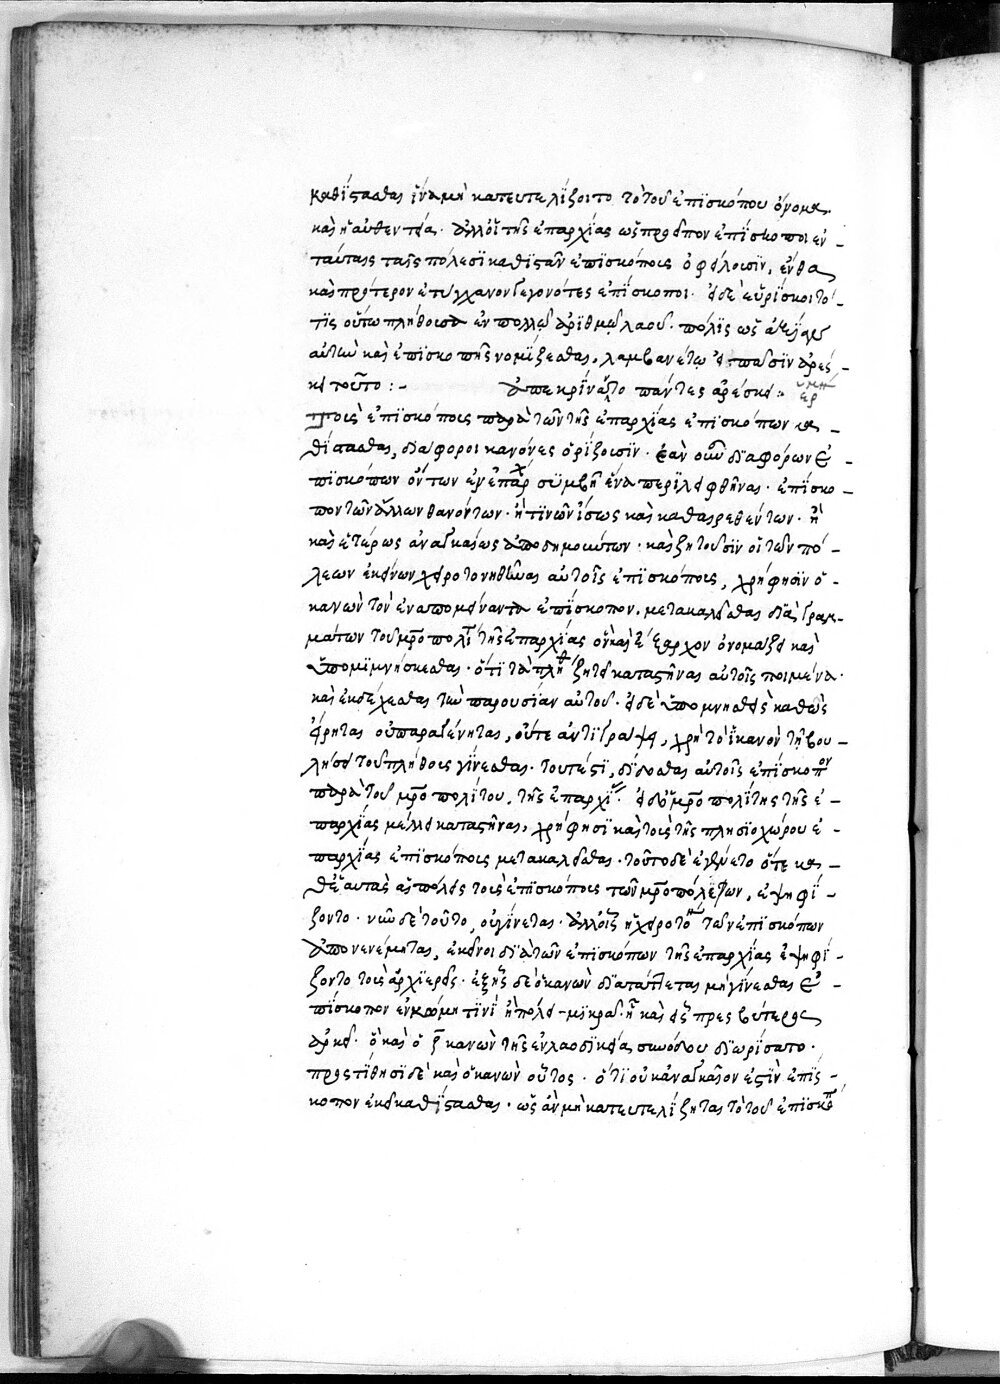 καθίστασθαι ἵνα μὴ κατευτελίζοιτο τὸ τοῦ ἐπϊσκόπου ὄνομα
καὶ ἡ αὐθεντία. ἀλλ' οἱ τῆς ἐπαρχίας ὡς πρόειπον ἐπΐσκοποι ἐν
ταύταις ταῖς πόλεσϊ καθιστᾶν ἐπϊσκόπους ὀφείλουσϊν, ἔνθα
καὶ πρότερον ἐτύγχανον γεγονότες ἐπΐσκοποι. εἰ δὲ εὑρΐσκοιτό
τϊς οὕτω πλήθουσα ἐν πολλῷ ἀρϊθμῷ λαοῦ πόλϊς ὡς ἀξίαν
αὐτὴν καὶ ἐπϊσκοπῆς νομίζεσθαι, λαμβανέτω
κει τοῦτο :- ἀπεκρίναντο πάντες ἀρέσκει :-
Τοὺς ἐπϊσκόπους παρὰ τῶν τῆς ἐπαρχίας ἐπϊσκόπων κα
θίστασθαι, διάφοροι κανόνες ὁρίζουσϊν. ἐὰν οὖν διαφόρων ἐ
πϊσκόπων ὄντων ἐν ἐπαρχ συμβῇ ἕνα περιλειφθῆναι ἐπΐσκο
πον τῶν ἄλλων θανόντων. ἤ τϊνων ἴσως καὶ καθαιρεθέντων. ἢ
καὶ ἑτέρως ἀναγκαίως ἀποδημούντων. καὶ ζητοῦσϊν οἱ τῶν πό
λεων ἐκείνων χειροτονηθῆναι αὐτοῖς ἐπϊσκόπους, χρή φησϊν ὁ
κανὼν τὸν ἐναπομείναντα ἐπΐσκοπον, μετακαλεῖσθαι διὰ γραμ
μάτων τοῦ μροπολϊ τῆς ἐπαρχίας ὃν καὶ ἔξαρχον ὀνομάζει καὶ
ὑπομϊμνήσκεσθαι. ὅτϊ τὰ πλήθ ζητεῖ καταστῆναι αὐτοῖς ποιμένα.
καὶ ἐκδέχεσθαι τὴν παρουσίαν αὐτοῦ. εἰ δὲ ὑπομνησθεὶς καθὼς
εἴρηται οὐ παραγένηται, οὔτε ἀντιγράψει, χρὴ τὸ ἱκανὸν τῇ βου
λήσει τοῦ πλήθους γίνεσθαι. τουτέστϊ, δίδοσθαι αὐτοῖς ἐπΐσκοπον
παρὰ τοῦ μροπολίτου, τῆς ἐπαρχί. εἰ δὲ ὁ μροπολίτης τῆς ἐ
παρχίας μέλλει καταστῆναι, χρή φησϊ καὶ τοὺς τῆς πλησϊοχώρου ἐ
παρχίας ἐπϊσκόπους μετακαλεῖσθαι. τοῦτο δὲ ἐγένετο ὅτε κα
θ' ἑαυτὰς αἱ πόλεις τοὺς ἐπϊσκόπους τῶν μροπόλεων, ἐψηφΐ
ζοντο. νῦν δὲ τοῦτο, οὐ γίνεται. ἀλλ' οἷς ἡ χειροτονη τῶν ἐπϊσκόπων
ἀπονενέμηται, ἐκεῖνοι διὰ τῶν ἐπϊσκόπων τῆς ἐπαρχίας ἐψηφΐ
ζοντο τοὺς ἀρχϊερεῖς. ἑξῆς δὲ ὁ κανὼν διατάττεται μὴ γίνεσθαι ἐ
πΐσκοπον ἐν κώμη τϊνὶ ἢ πόλει μϊκρᾷ. ᾗ καὶ εἷς πρεσβύτερος
ἀρκεῖ. ὃ καὶ ὁ κανὼν τῆς ἐν λαοδϊκείᾳ συνόδου διωρίσατο.
προστίθησϊ δὲ καὶ ὁ κανὼν οὗτος. ὅτϊ οὐκ ἀναγκαῖον ἐστὶν ἐπϊς
κοπον ἐκεῖ καθίστασθαι. ὡς ἂν μὴ κατευτελίζηται τὸ τοῦ ἐπϊσκόπ